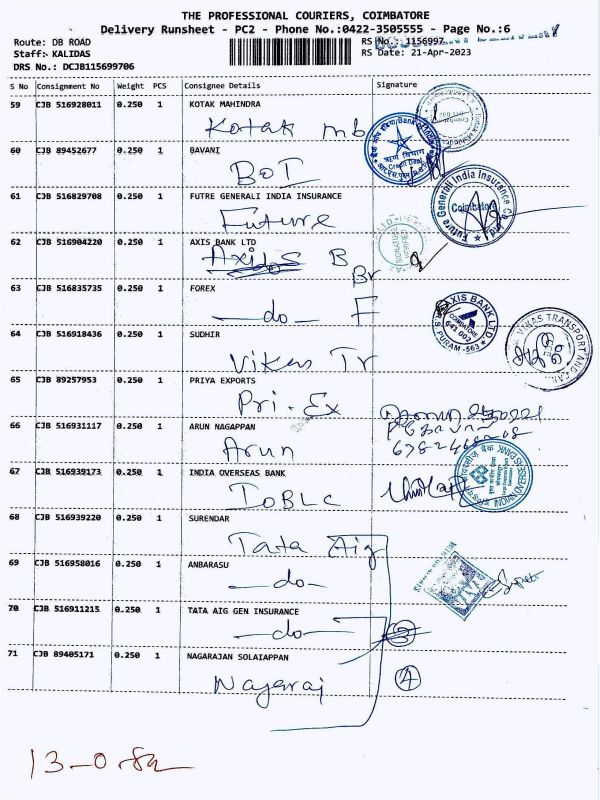 THE PROFESSIONAL COURIERS, COIMBATORE
Delivery Runsheet - PC2 - Phone No.:0422-3505555 - Page No.:6
Route: DB ROAD
RS No.: 1156997
Staff: KALIDAS
RS Date: 21-Apr-2023
DRS No.: DCJB115699706
S No Consignment No Weight PCS Consignee Details Signature
59 CJB 516928011 0.250 1 KOTAK MAHINDRA
Kotak mb
60 CJB 89452677 0.250 1 BAVANI
BOI
61 CJB 516829708 0.250 1 FUTRE GENERALI INDIA INSURANCE
Future
Future Generali India Insurance Co.
Coimbatore
62 CJB 516904220 0.250 1 AXIS BANK LTD
Axis B
Br
63 CJB 516835735 0.250 1 FOREX
-do- F
AXIS BANK LTD
R.S. PURAM-563
64 CJB 516918436 0.250 1 SUDHIR
Vikas Tr
VIKAS TRANSPORT AND
65 CJB 89257953 1 0.250 1 PRIYA EXPORTS
Pri. Ex
66 CJB 516931117 0.250 1 ARUN NAGAPPAN
Arun
67 CJB 516939173 0.250 1 INDIA OVERSEAS BANK
IOBLC
INDIAN OVERSEAS BANK
68 CJB 516939220 0.250 1 SURENDAR
Tata Aig
69 CJB 516958016 0.250 1 ANBARASU
-do-
70 CJB 516911215 0.250 1 TATA AIG GEN INSURANCE
-do- 3
71 CJB 89405171 0.250 1 NAGARAJAN SOLAIAPPAN
Nagaraj 4